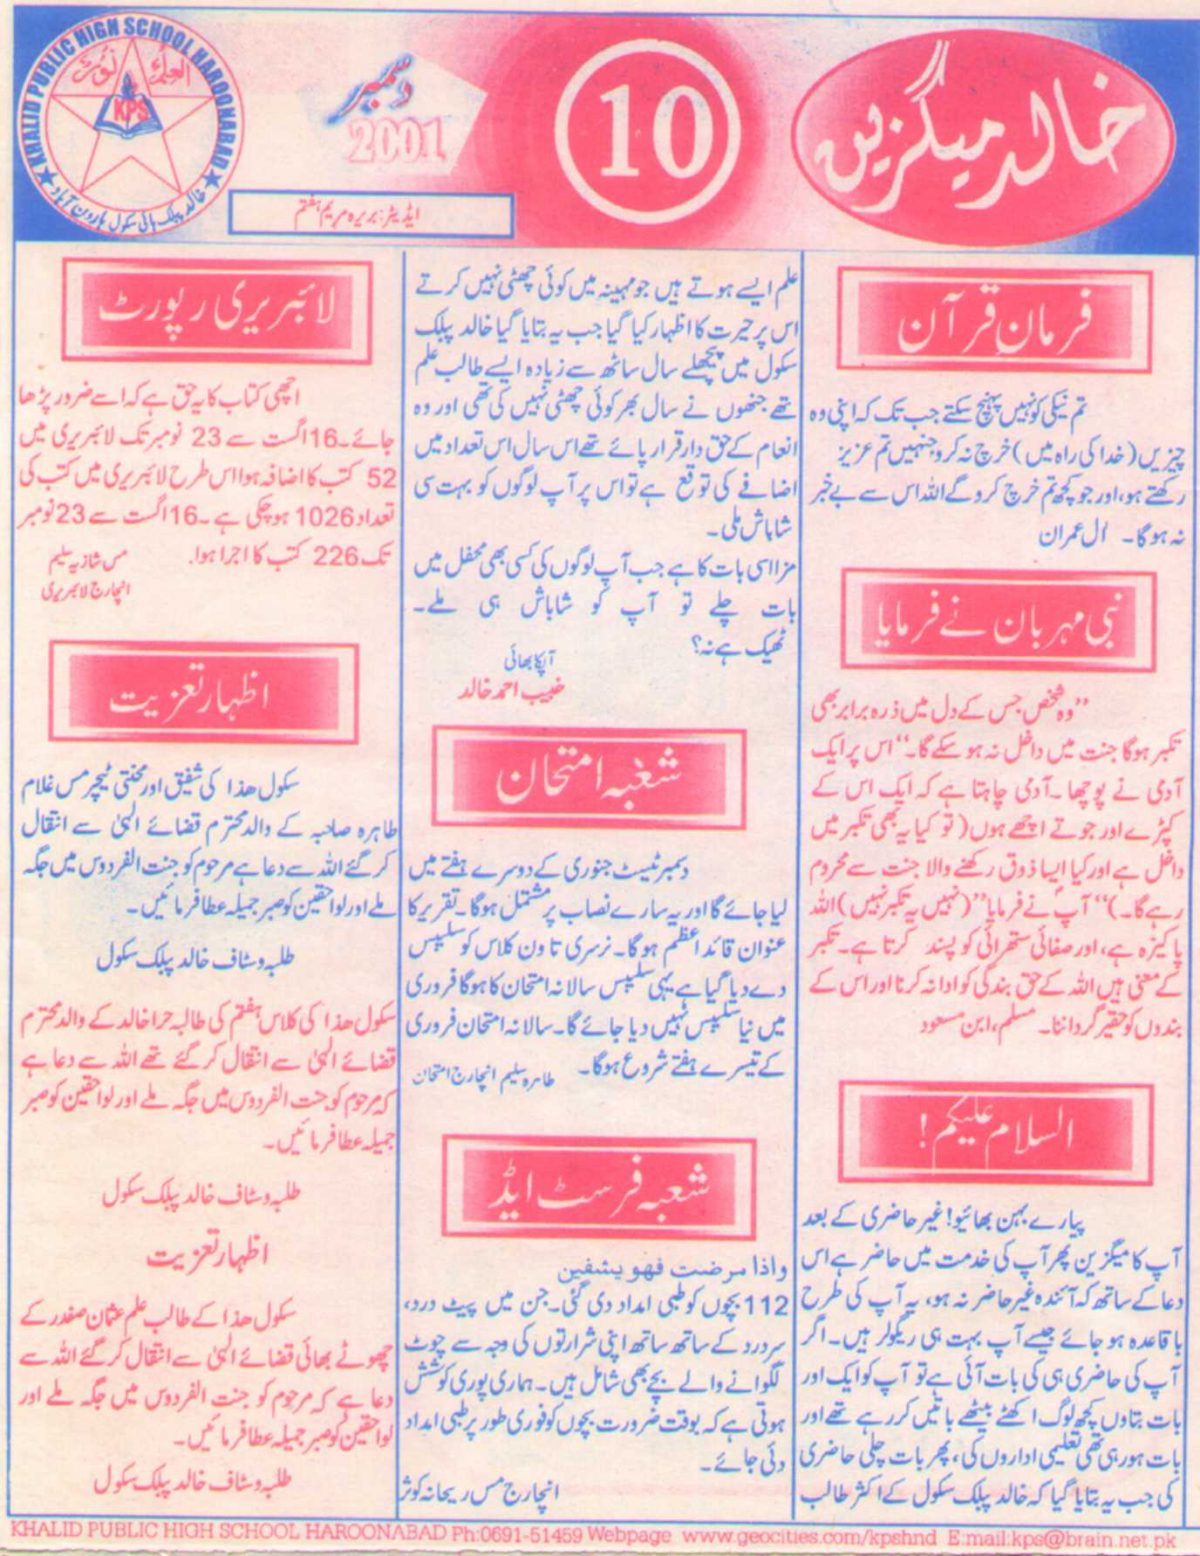 خالد میگزین
10
دسمبر
2001
KHALID PUBLIC HIGH SCHOOL HAROONABAD
العلم نور
KPS
خالد پبلک ہائی سکول ہارون آباد
ایڈیٹر: بریرہ مریم ہفتم
فرمانِ قرآن
تم نیکی کو نہیں پہنچ سکتے جب تک کہ اپنی وہ
چیزیں (خدا کی راہ میں) خرچ نہ کرو جنہیں تم عزیز
رکھتے ہو، اور جو کچھ تم خرچ کرو گے اللہ اس سے بے خبر
نہ ہوگا۔ ال عمران
نبی مہربان نے فرمایا
”وہ شخص جس کے دل میں ذرہ برابر بھی
تکبر ہوگا جنت میں داخل نہ ہو سکے گا۔“ اس پر ایک
آدمی نے پوچھا۔ آدمی چاہتا ہے کہ ایک اس کے
کپڑے اور جوتے اچھے ہوں (تو کیا یہ بھی تکبر میں
داخل ہے اور کیا ایسا ذوق رکھنے والا جنت سے محروم
رہے گا۔)“ آپؐ نے فرمایا ”(نہیں یہ تکبر نہیں) اللہ
پاکیزہ ہے، اور صفائی ستھرائی کو پسند کرتا ہے۔ تکبر
کے معنی ہیں اللہ کے حق بندگی کو ادا نہ کرنا اور اس کے
بندوں کو حقیر گرداننا۔ مسلم، ابن مسعود
السلام علیکم!
پیارے بہن بھائیو! غیر حاضری کے بعد
آپ کا میگزین پھر آپ کی خدمت میں حاضر ہے اس
دعا کے ساتھ کہ آئندہ غیر حاضر نہ ہو، یہ آپ کی طرح
باقاعدہ ہو جائے جیسے آپ بہت ہی ریگولر ہیں۔ اگر
آپ کی حاضری ہی کی بات آئی ہے تو آپ کو ایک اور
بات بتاوں کچھ لوگ اکٹھے بیٹھے باتیں کر رہے تھے اور
بات ہو رہی تھی تعلیمی اداروں کی، پھر بات چلی حاضری
کی جب یہ بتایا گیا کہ خالد پبلک سکول کے اکثر طالب
علم ایسے ہوتے ہیں جو مہینہ میں کوئی چھٹی نہیں کرتے
اس پر حیرت کا اظہار کیا گیا جب یہ بتایا گیا خالد پبلک
سکول میں پچھلے سال ساٹھ سے زیادہ ایسے طالب علم
تھے جنھوں نے سال بھر کوئی چھٹی نہیں کی تھی اور وہ
انعام کے حق دار قرار پائے تھے اس سال اس تعداد میں
اضافے کی توقع ہے تو اس پر آپ لوگوں کو بہت سی
شاباش ملی۔
مزا اسی بات کا ہے جب آپ لوگوں کی کسی بھی محفل میں
بات چلے تو آپ کو شاباش ہی ملے۔
ٹھیک ہے نہ؟
آپکا بھائی
خبیب احمد خالد
شعبہ امتحان
دسمبر ٹیسٹ جنوری کے دوسرے ہفتے میں
لیا جائے گا اور یہ سارے نصاب پر مشتمل ہوگا۔ تقریر کا
عنوان قائد اعظم ہوگا۔ نرسری تا ون کلاس کو سلیبس
دے دیا گیا ہے یہی سلیبس سالانہ امتحان کا ہوگا فروری
میں نیا سلیبس نہیں دیا جائے گا۔ سالانہ امتحان فروری
کے تیسرے ہفتے شروع ہوگا۔ طاہرہ سلیم انچارج امتحان
شعبہ فرسٹ ایڈ
واذا مرضت فھو یشفین
112 بچوں کو طبی امداد دی گئی۔ جن میں پیٹ درد،
سردرد کے ساتھ ساتھ اپنی شرارتوں کی وجہ سے چوٹ
لگوانے والے بچے بھی شامل ہیں۔ ہماری پوری کوشش
ہوتی ہے کہ بوقت ضرورت بچوں کو فوری طور پر طبی امداد
دی جائے۔
انچارج مس ریحانہ کوثر
لائبریری رپورٹ
اچھی کتاب کا یہ حق ہے کہ اسے ضرور پڑھا
جائے۔ 16 اگست سے 23 نومبر تک لائبریری میں
52 کتب کا اضافہ ہوا اس طرح لائبریری میں کتب کی
تعداد 1026 ہوچکی ہے۔ 16 اگست سے 23 نومبر
تک 226 کتب کا اجرا ہوا۔
مس شازیہ سلیم
انچارج لائبریری
اظہار تعزیت
سکول ھذا کی شفیق اور محنتی ٹیچر مس غلام
طاہرہ صاحبہ کے والد محترم قضائے الہیٰ سے انتقال
کر گئے اللہ سے دعا ہے مرحوم کو جنت الفردوس میں جگہ
ملے اور لواحقین کو صبر جمیلہ عطا فرمائیں۔
طلبہ و سٹاف خالد پبلک سکول
سکول ھذا کی کلاس ہفتم کی طالبہ حرا خالد کے والد محترم
قضائے الہیٰ سے انتقال کر گئے تھے اللہ سے دعا ہے
کہ مرحوم کو جنت الفردوس میں جگہ ملے اور لواحقین کو صبر
جمیلہ عطا فرمائیں۔
طلبہ و سٹاف خالد پبلک سکول
اظہار تعزیت
سکول ھذا کے طالب علم عثمان صفدر کے
چھوٹے بھائی قضائے الہیٰ سے انتقال کر گئے اللہ سے
دعا ہے کہ مرحوم کو جنت الفردوس میں جگہ ملے اور
لواحقین کو صبر جمیلہ عطا فرمائیں۔
طلبہ و سٹاف خالد پبلک سکول
KHALID PUBLIC HIGH SCHOOL HAROONABAD Ph:0691-51459 Webpage www.geocities.com/kpshnd E:mail:kps@brain.net.pk